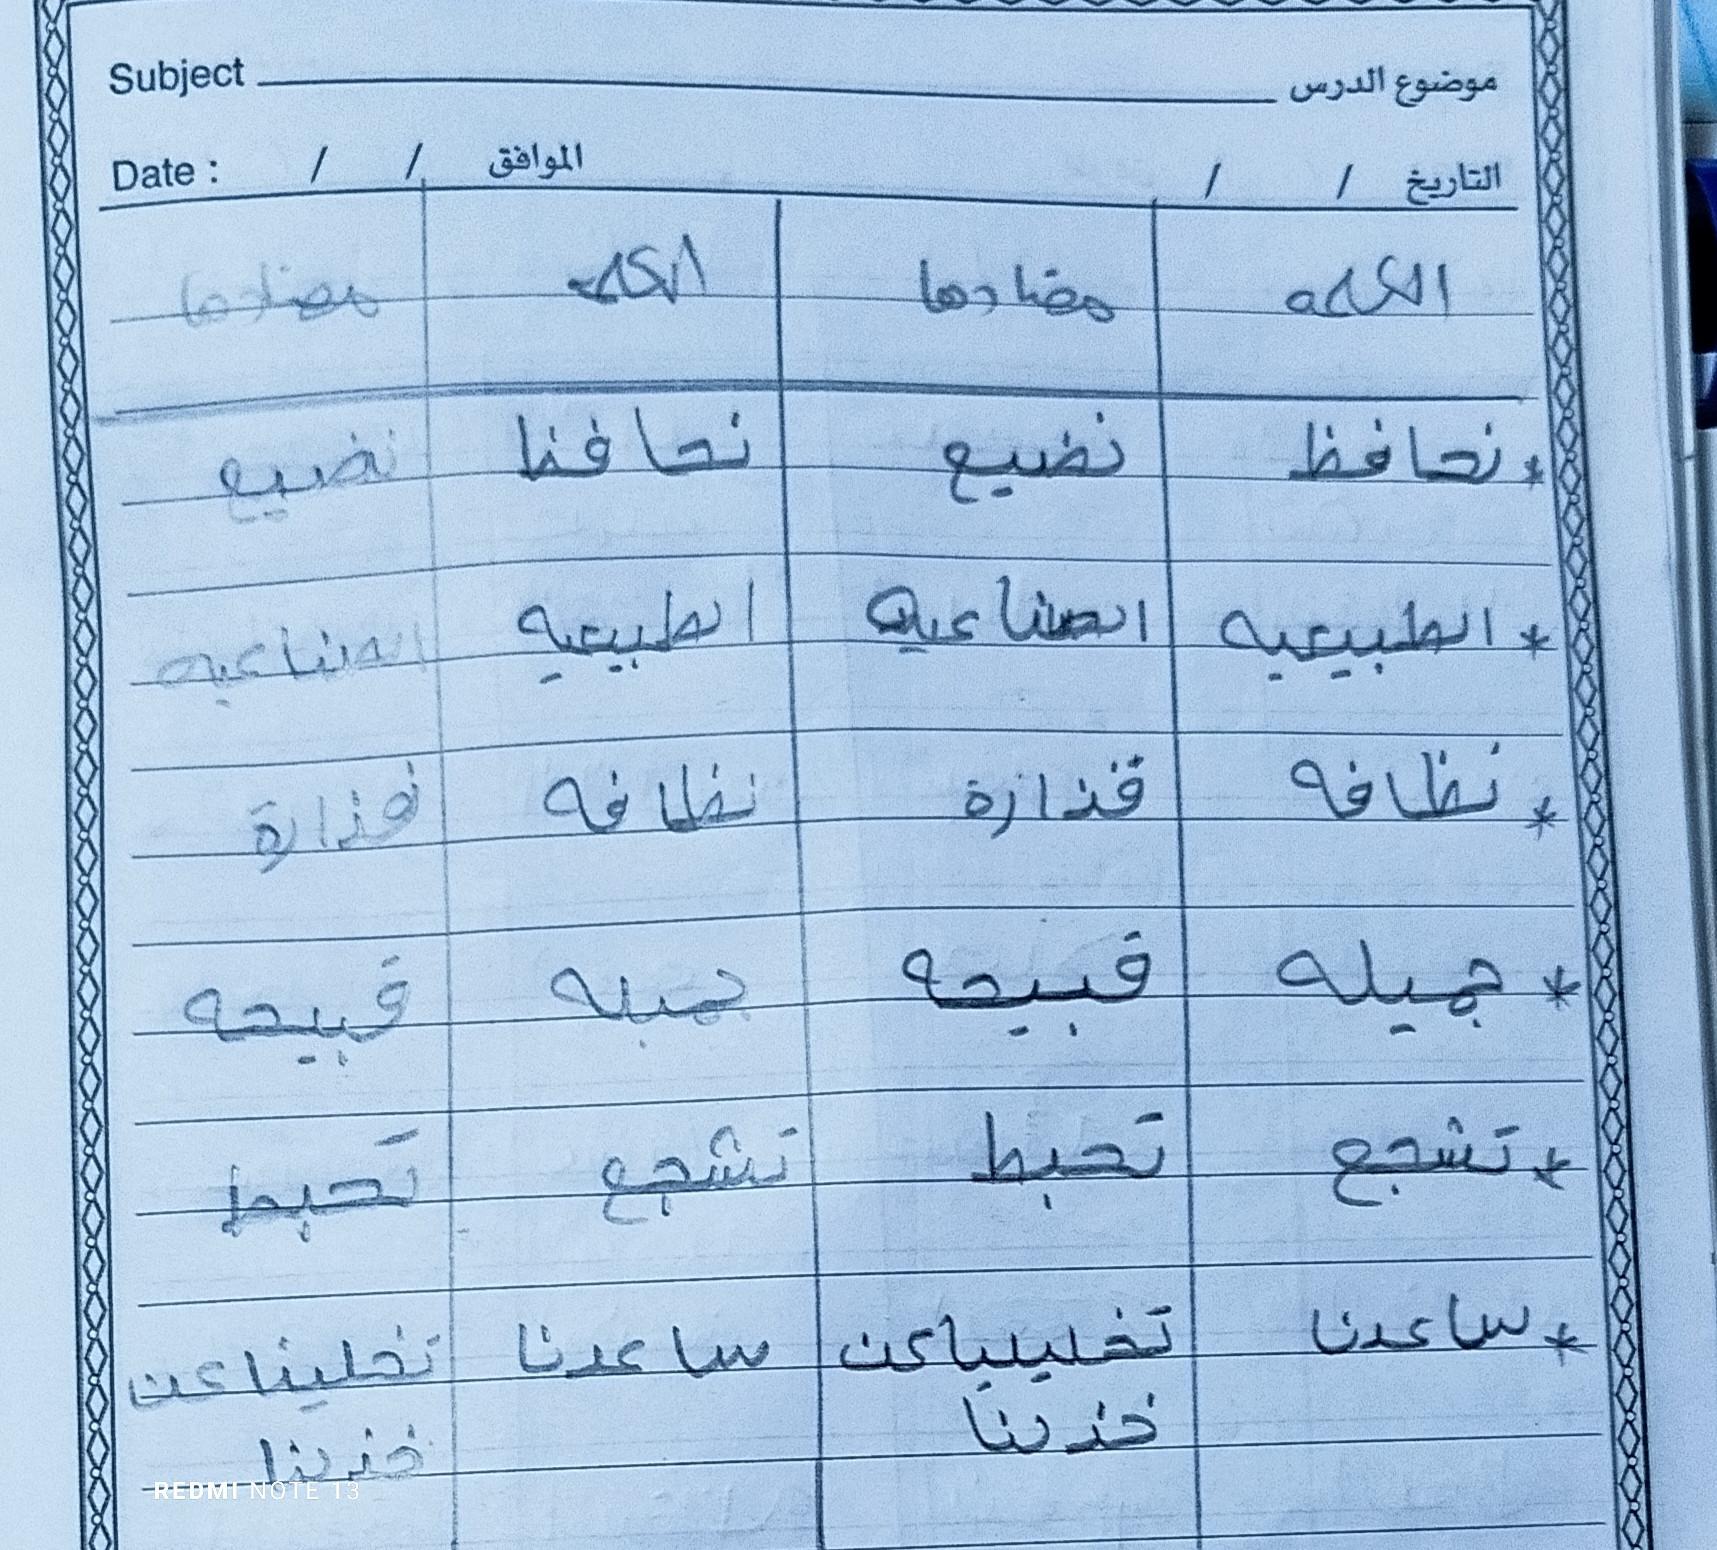 Subject موضوع الدرس
Date : / / الموافق / / التاريخ
الكلمه مضادها الكلمه مضادها
* نحافظ نضيع نحافظ نضيع
* الطبيعيه الصناعيه الطبيعيه الصناعيه
* نظافه قذارة نظافه قذارة
* جميله قبيحه جميله قبيحه
* تشجع تحبط تشجع تحبط
* ساعدنا تخلينا عن ساعدنا تخلينا عن
REDMI NOTE 13